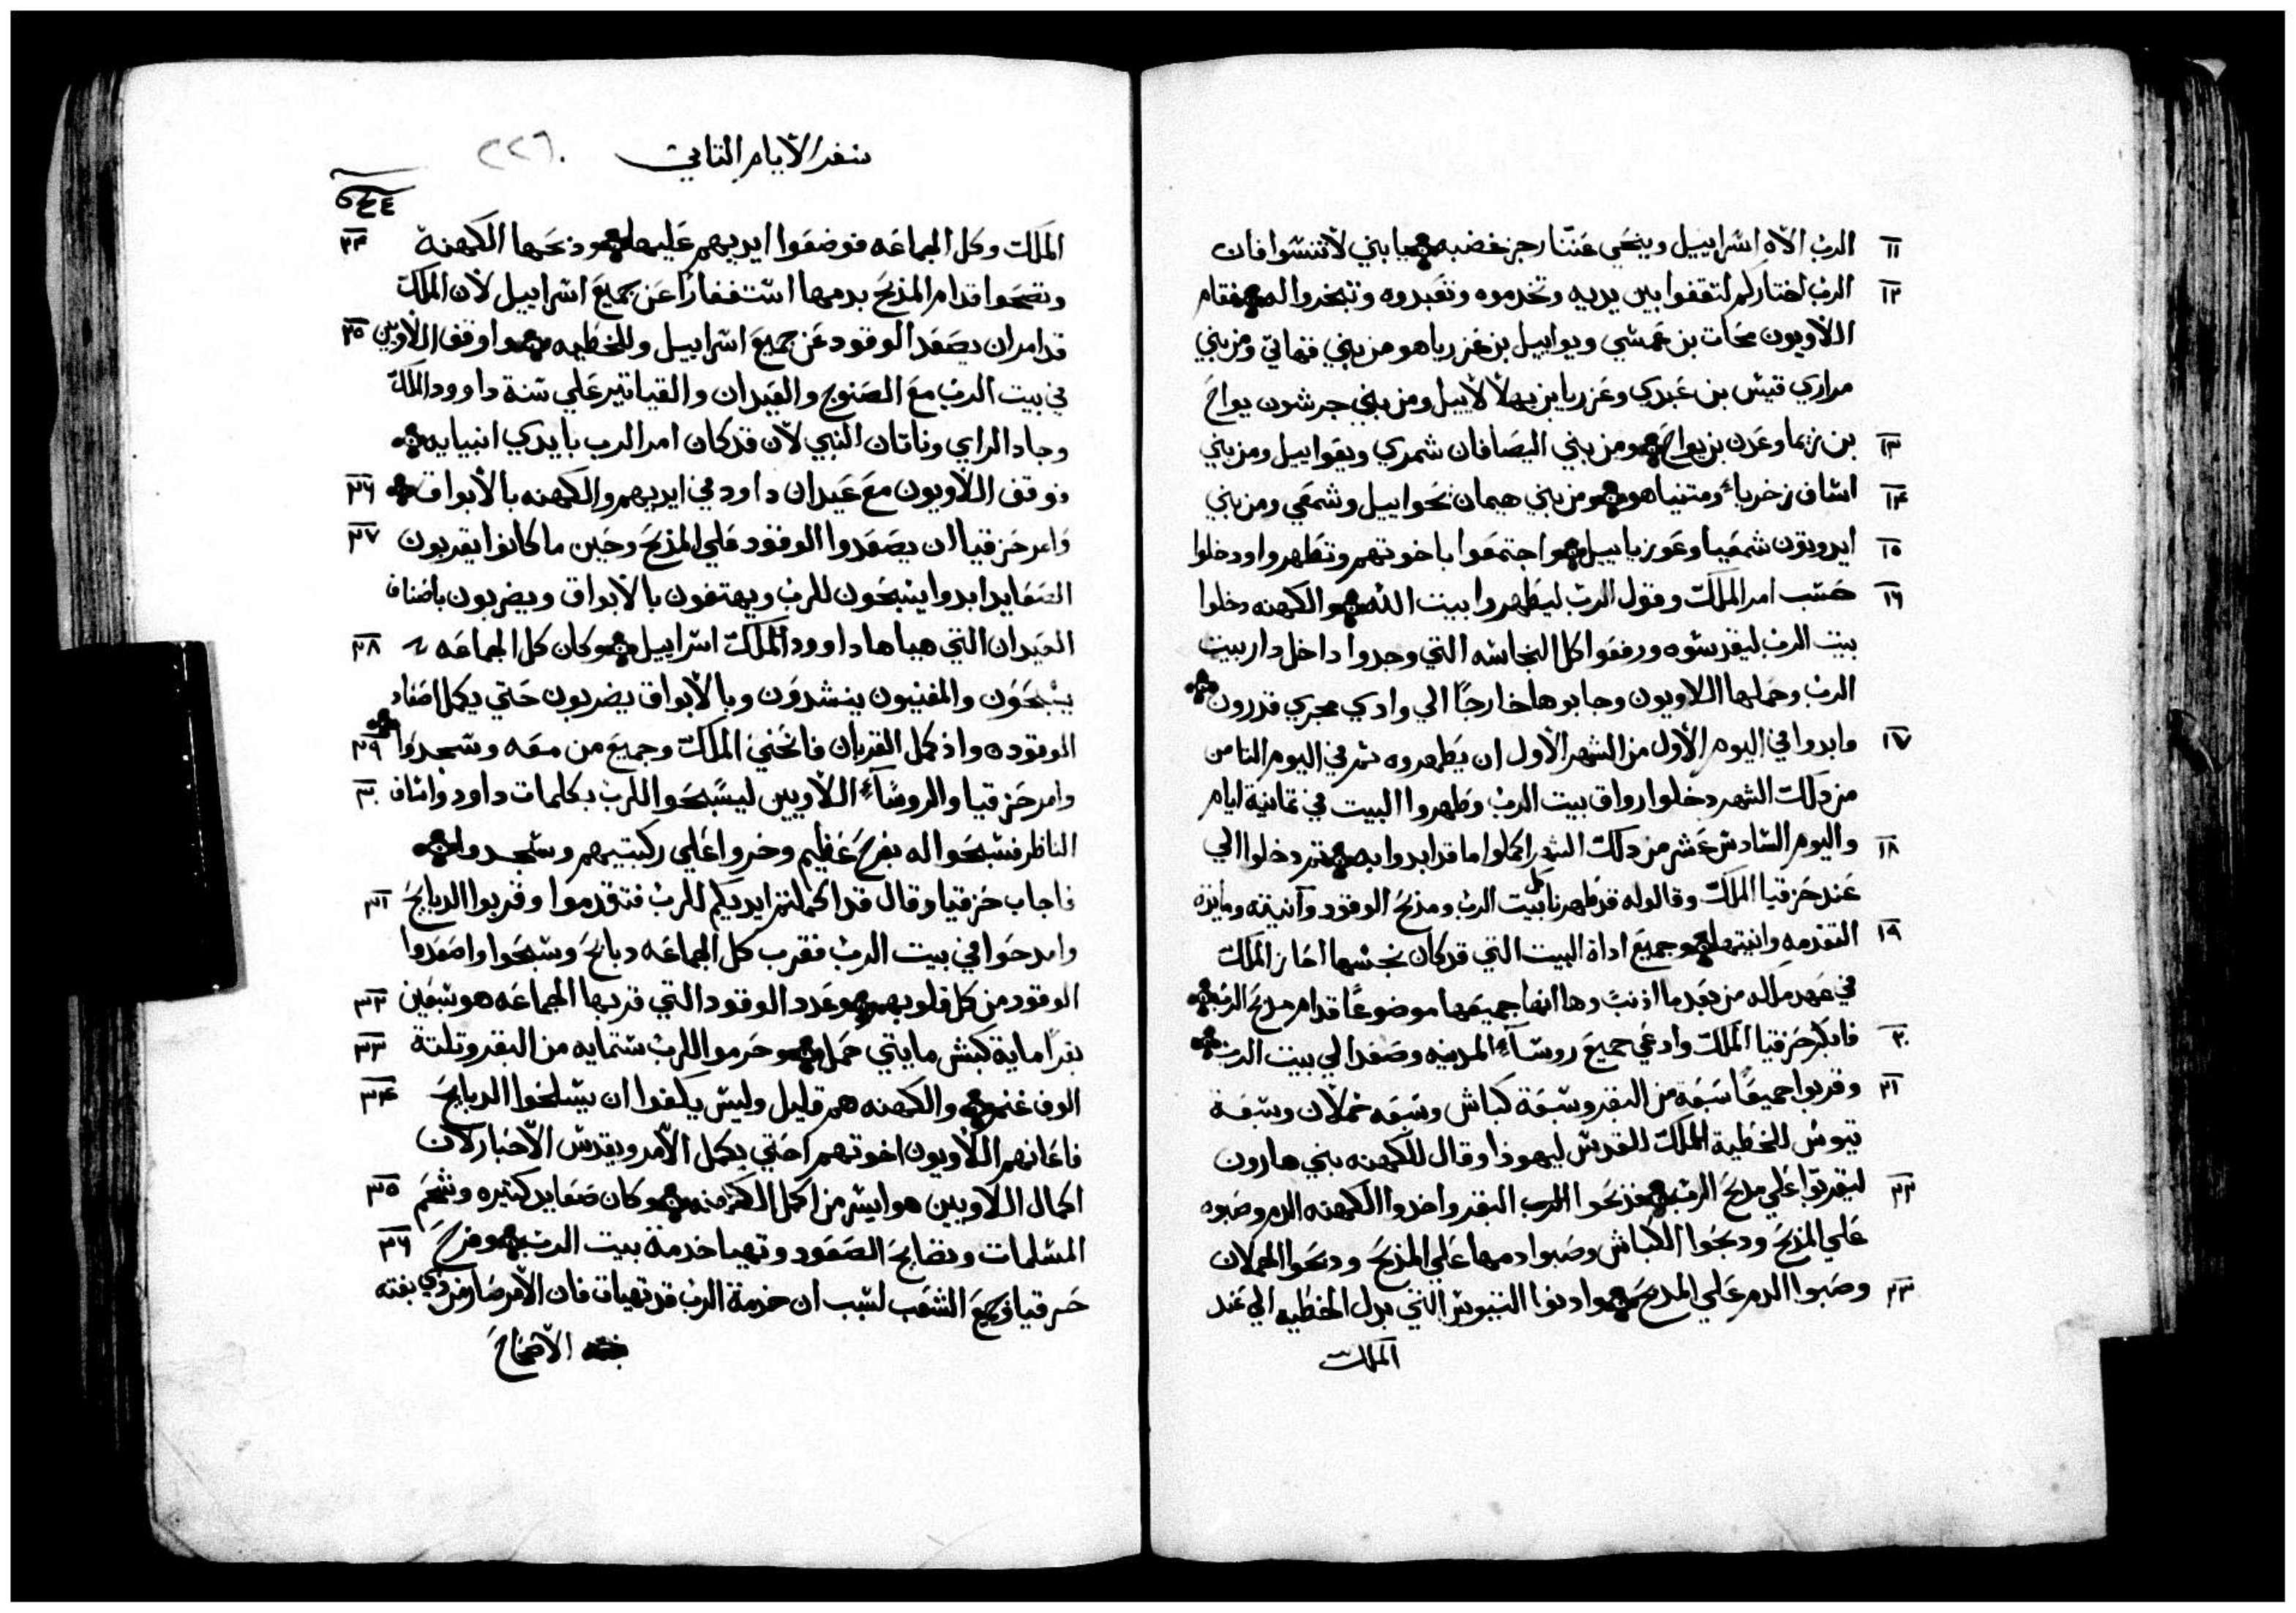 ١١ الرب الاه اسراييل وينحي عننا رجز غضبه يا بني لا تنسوا فان
١٢ الرب اختاركم لتقفوا بين يديه وتخدموه وتعبدوه وتبخروا له فقام
اللاويون محات بن عمشي ويواييل بن عزرياهو من بني قهاتي ومن بني
مراري قيش بن عبدي وعزريا بن يهلالاييل ومن بني جرشون يواح
١٣ بن زما وعدن بن يواح ومن بني اليصافان شمري ويعواييل ومن بني
١٤ اساف زخرياء ومتنياهو ومن بني هيمان نحواييل وشمعي ومن بني
١٥ ايدوبون شمعيا وعوزياييل واجتمعوا باخوتهم وتطهروا ودخلوا
١٦ حسب امر الملك وقول الرب ليطهروا بيت الله والكهنه دخلوا
بيت الرب ليقدسوه ورفعوا كل النجاسه التي وجدوا داخل دار بيت
الرب وحملها اللاويون وجابوها خارجًا الي وادي مجري قدرون
١٧ وابدوا في اليوم الاول من الشهر الاول ان يطهروه ثم في اليوم الثامن
من ذلك الشهر دخلوا رواق بيت الرب وطهروا البيت في ثمانية ايام
١٨ واليوم السادس عشر من ذلك الشهر اكملوا ما قد ابدوا به ثم دخلوا الي
عند حزقيا الملك وقالوا له قد طهرنا كل بيت الرب ومذبح الوقود وآنيته ومايدة
١٩ التقدمه وانيتها وجميع اداة البيت التي قد كان نجسها احاز الملك
في عهد ملكه من بعد ما اذنب وها انها جميعها موضوعًا قدام مدبح الرب
٢٠ فابكر حزقيا الملك وادعي جميع روساء المدينه وصعد الي بيت الرب
٢١ وقربوا جميعًا سبعة من البقر وسبعة كباش وسبعه خملان وسبعة
تيوس للخطية الملك للقدس ليهوذا وقال للكهنه بني هارون
٢٢ ليقربوا علي مدبح الرب فذبحوا البقر واخدوا الكهنه الدم وصبوه
علي المذبح ودبحوا الكباش وصبوا دمها علي المذبح ودبحوا الحملان
٢٣ وصبوا الدم علي المدبح وادنوا التيوس التي بدل الخطيه الي عند
الملك
سفر الايام الثاني ٢٢٦
الملك وكل الجماعه فوضعوا ايديهم عليها وذبحها الكهنة ٢٤
ونضحوا قدام المذبح بدمها استغفارًا عن جميع اسراييل لان الملك
قد امر ان يصعد الوقود عن جميع اسراييل وللخطيه واوقف اللاويين ٢٥
في بيت الرب مع الصنوج والعيدان والقياتير علي سنة داوود الملك
وجاد الراي وناتان النبي لان قد كان امر الرب بايدي انبيايه
فوقف اللاويون مع عيدان داود في ايديهم والكهنه بالابواق ٢٦
فامر حزقيا ان يصعدوا الوقود علي المذبح وحين ما كانوا يقربون ٢٧
الصعايد ابدوا يسبحون للرب ويهتفون بالابواق ويضربون باصناف
العيدان التي هياها داوود الملك اسراييل وكان كل الجماعه ٢٨
يسبحون والمغنيون ينشدون وبالابواق يضربون حتي يكمل اصعاد
الوقود واذ كمل القربان فانحني الملك وجميع من معه وسجدوا ٢٩
وامر حزقيا والروساء اللاويين ليسبحوا للرب بكلمات داود واساف ٣٠
الناظر فسبحوا له بفرح عظيم وخروا علي ركبتيهم وسجدوا
فاجاب حزقيا وقال قد اكملتم ايديكم للرب فتقدموا وقربوا الدبايح ٣١
وامدحوا في بيت الرب فقرب كل الجماعه دبايح وسبحوا واصعدوا
الوقود من كل قلوبهم وعدد الوقود التي قربها الجماعه هو سبعين ٣٢
بقرًا ماية كبش مايتي حمل وحرموا للرب ستمايه من البقر وتلتة ٣٣
الوف غنم والكهنه هم قليل وليس يكفوا ان يسلخوا الدبايح ٣٤
فاعانهم اللاويون اخوتهم حتي يكمل الامر ويقدس الاحبار لان
اكمال اللاويين هو ايسر من اكمل الكهنه وكان صعايد كتيره وشحم ٣٥
المسلمات ونضايح الصعود وتهيا خدمة بيت الرب وفرح ٣٦
حزقيا وجميع الشعب لسبب ان خدمة الرب قد تهيات فان الامر صار من دي بغته
الاصحاح